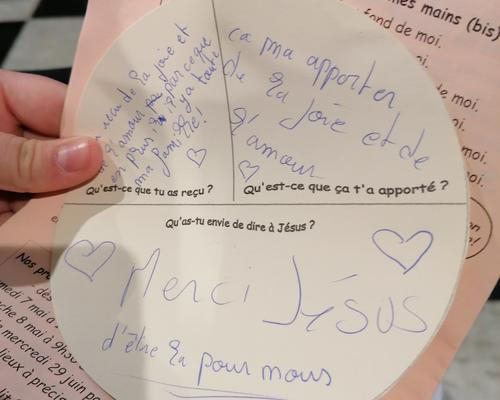 reçu de la joie et
de l'amour
en plus parceque
il y a toute
ma famille!
Qu'est-ce que tu as reçu ?
ça ma apporter
de la joie et de
l'amour
Qu'est-ce que ça t'a apporté ?
Qu'as-tu envie de dire à Jésus ?
Merci Jésus
d'être la pour nous
mes mains (bis)
fond de moi.
oi.
de moi.
e moi.
de moi.
on
e!
Nos pro
medi 7 mai à
che 8 mai à 9h30
mercredi 29 juin po
lieux à précis